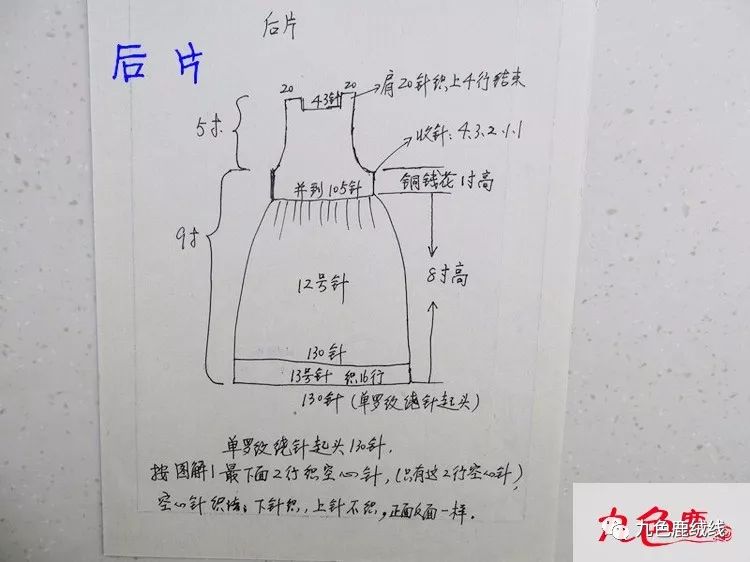 后片
后片
20
43针
20
肩20针织上4行结束
5寸
收针:4.3.2.1.1
并到105针
铜钱花1寸高
9寸
12号针
8寸高
130针
13号针 织16行
130针(单罗纹绕针起头)
单罗纹绕针起头130针.
按图解1最下面2行织空心针,(只有这2行空心针)
空心针织法:下针织,上针不织,正面反面一样.
九色鹿
九色鹿绒线